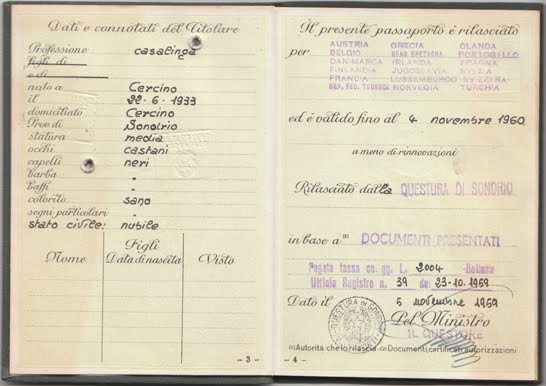 Dati e connotati del Titolare
Professione casalinga
figli di
e di
nato a Cercino
il 22-6-1933
domiciliato Cercino
Prov di Sondrio
statura media
occhi castani
capelli neri
barba -
baffi -
colorito sano
segni particolari -
stato civile: nubile
Figli
Nome Data di nascita Visto
- 3 -
Il presente passaporto è rilasciato
per AUSTRIA GRECIA OLANDA
BELGIO GRAN BRETAGNA PORTOGALLO
DANIMARCA IRLANDA SPAGNA
FINLANDIA JUGOSLAVIA SVEZIA
FRANCIA LUSSEMBURGO SVIZZERA
REP. FED. TEDESCA NORVEGIA TURCHIA
ed è valido fino al 4 novembre 1960
a meno di rinnovazioni
Rilasciato dalla QUESTURA DI SONDRIO
in base a DOCUMENTI PRESENTATI
Pagata tassa cc. gg. L. 2004 - Bollette
Ufficio Registro n. 39 del 23-10-1969
Dato il 5 novembre 1969
Pel Ministro
IL QUESTORE
QUESTURA DI SONDRIO
(1) Autorità che lo rilascia - (2) Documenti, certificati, autorizzazioni
- 4 -